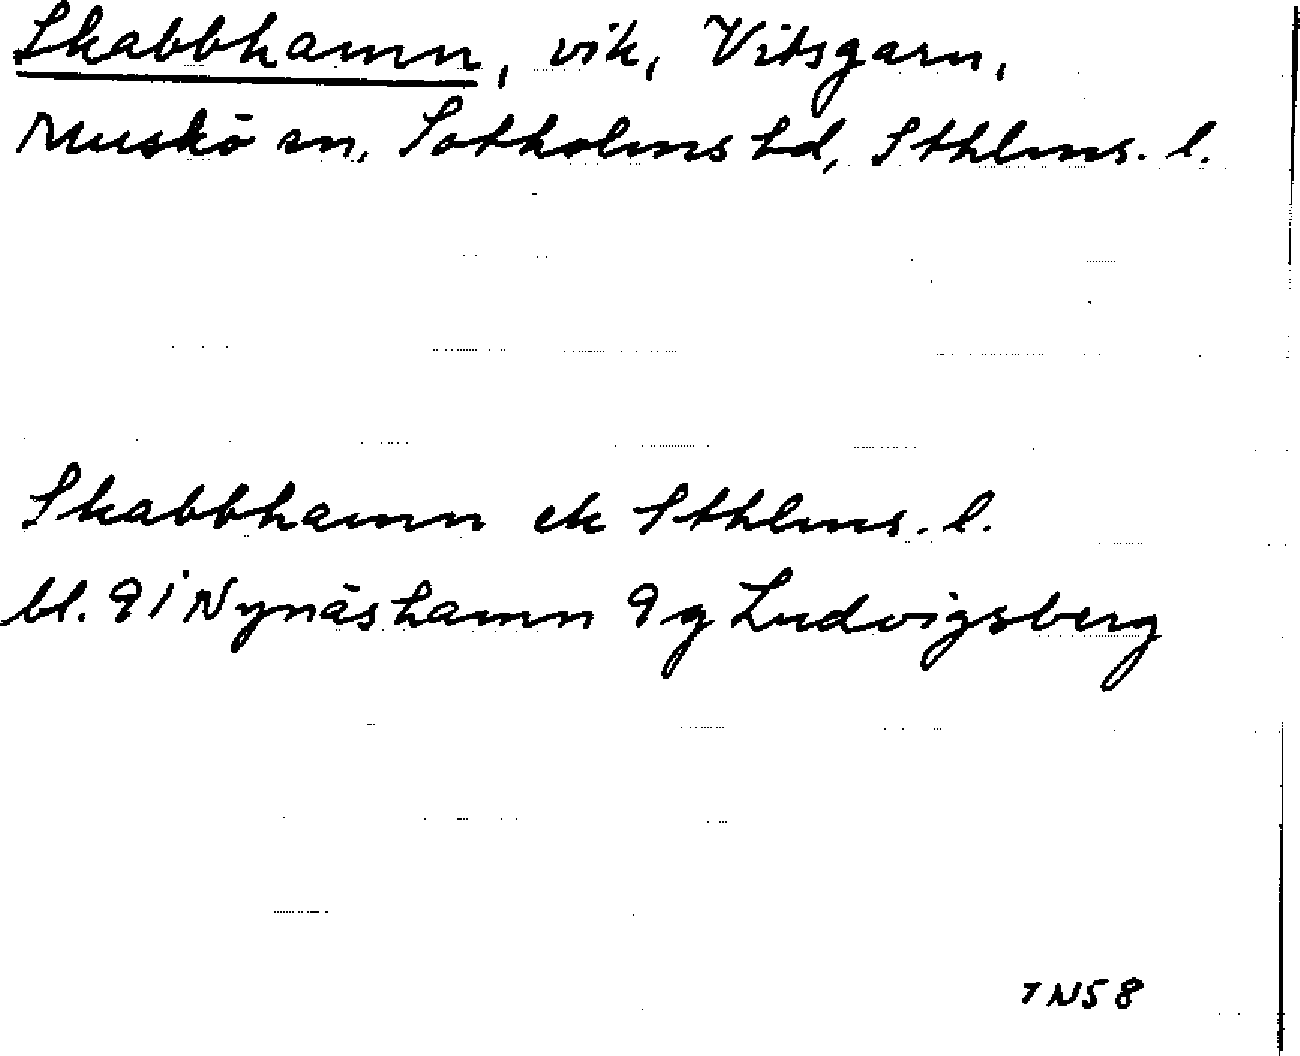 Skabbhamn, vik, Vitsgarn,
Muskö sn, Sotholms hd, Sthlms. l.
Skabbhamn ek Sthlms. l.
bl. 91 Nynäshamn 9g Ludvigsberg
TN58